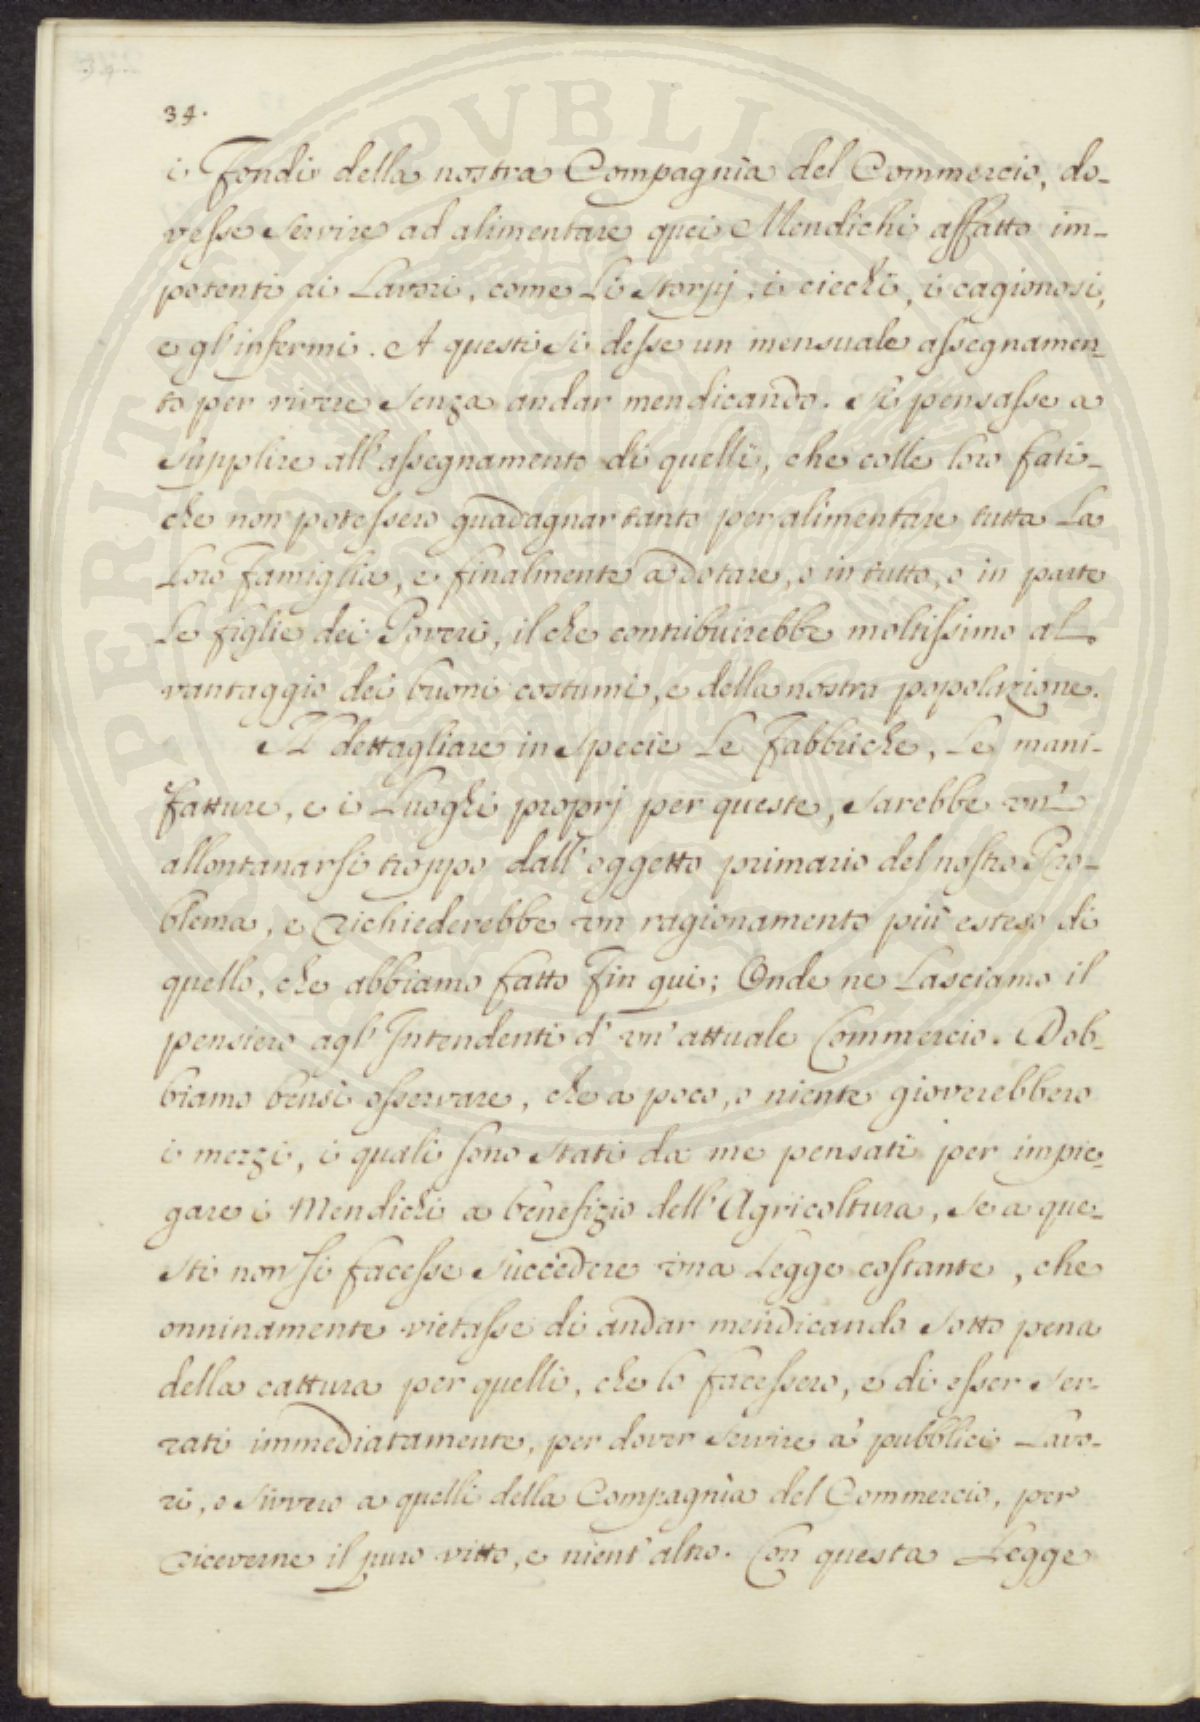 34.
i Fondi della nostra Compagnìa del Commercio, do-
vesse servire ad alimentare quei Mendichi affatto im-
potenti ai Lavori, come Li storpj, i ciechi, i cagionosi,
e gl'infermi. A questi si desse un mensuale assegnamen-
to per vivere senza andar mendicando. Si pensasse a
supplire all'assegnamento di quelli, che colle loro fati-
che non potessero guadagnar tanto per alimentare tutta La
Loro famiglia, e finalmente a dotare, o in tutto, o in parte
Le figlie dei Poveri, il che contribuirebbe moltissimo al
vantaggio dei buoni costumi, e della nostra popolazione.
Il dettagliare in specie Le Fabbriche, Le mani-
fatture, e i Luoghi proprj per queste, sarebbe un'
allontanarsi troppo dall'oggetto primario del nostro Pro-
blema, e richiederebbe un ragionamento più esteso di
quello, che abbiamo fatto fin qui; Onde ne Lasciamo il
pensiero agl'Intendenti d'un'attuale Commercio. Dob-
biamo bensì osservare, che a poco, o niente gioverebbero
i mezzi, i quali sono stati da me pensati per impie-
gare i Mendichi a benefizio dell'Agricoltura, se a que-
sti non si facesse succedere una Legge costante, che
onninamente vietasse di andar mendicando sotto pena
della cattura per quelli, che lo facessero, e di esser ser-
rati immediatamente, per dover servire a' pubblici Lavo-
ri, o sivvero a quelli della Compagnìa del Commercio, per
riceverne il puro vitto, e nient'altro. Con questa Legge